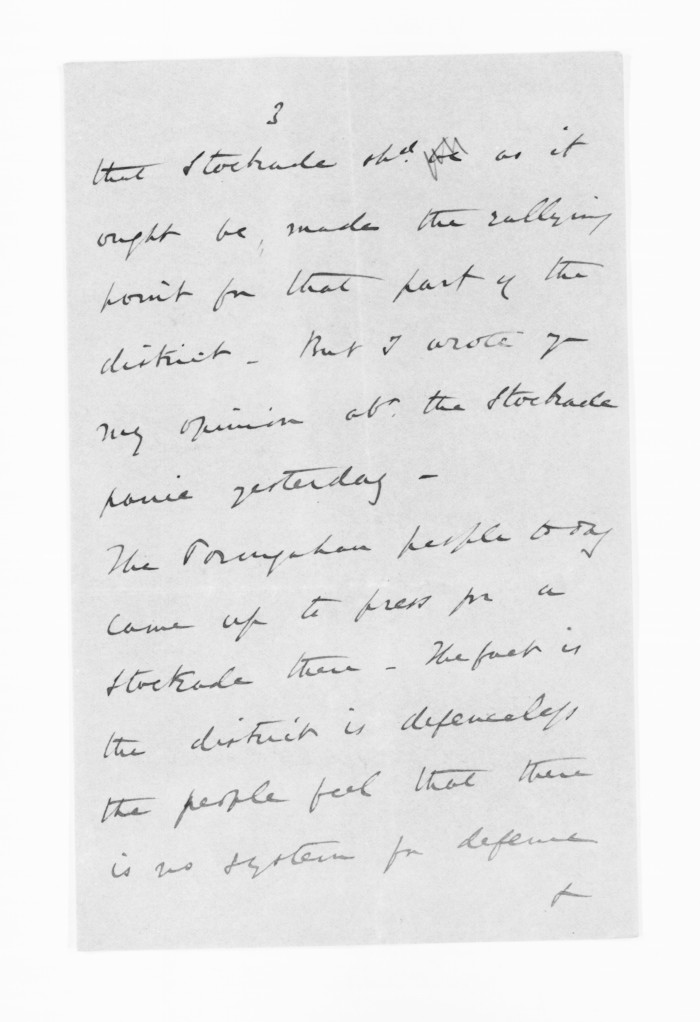 3
that Stockade shd. as it
ought be, made the rallying
point for that part of the
district - But I wrote yr
my opinion abt. the Stockade
panic yesterday -
The Porangahau people to day
came up to press for a
Stockade there - The fact is
the district is defenceless
the people feel that there
is no system for defence
&